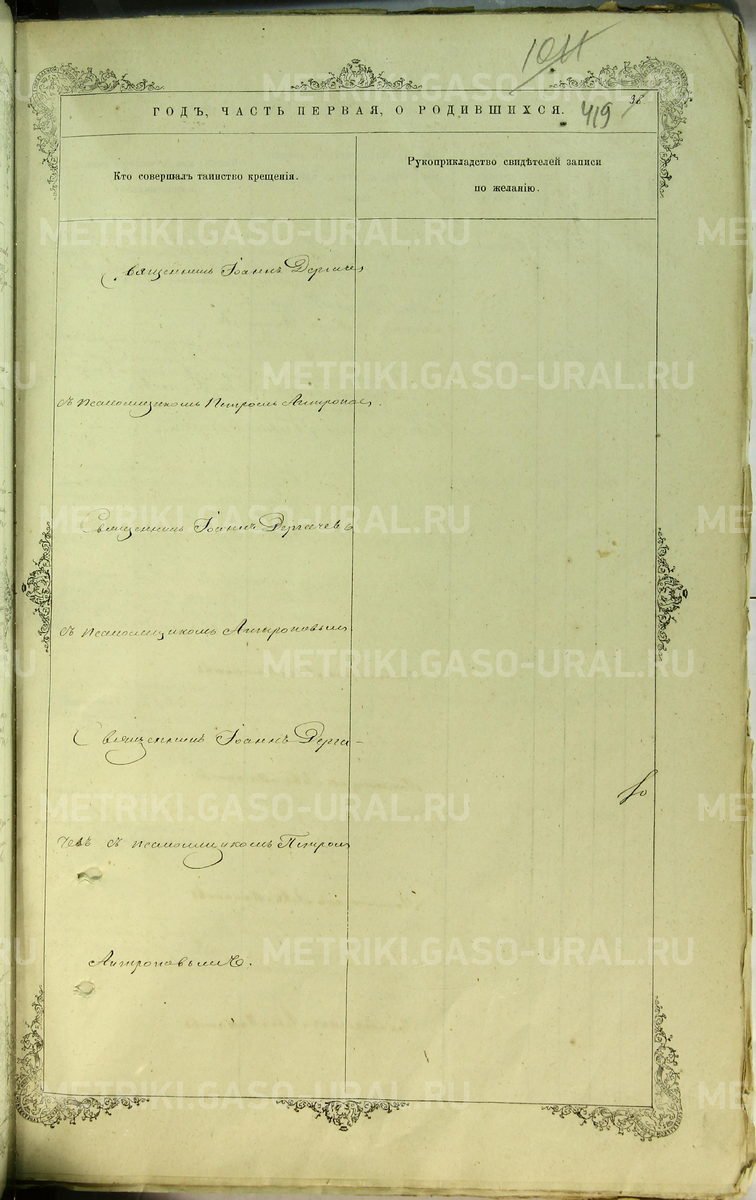 1011
ГОДЪ, ЧАСТЬ ПЕРВАЯ, О РОДИВШИХСЯ.
419
38
Кто совершалъ таинство крещенія.
Рукоприкладство свидѣтелей записи
по желанію.
Священникъ Іоаннъ Дергачев
съ псаломщикомъ Петромъ Антропов
Священникъ Іоаннъ Дергачевъ
съ псаломщикомъ Антроповым
Священникъ Іоаннъ Дерга-
чевъ съ псаломщикомъ Петром
Антроповымъ.
METRIKI.GASO-URAL.RU